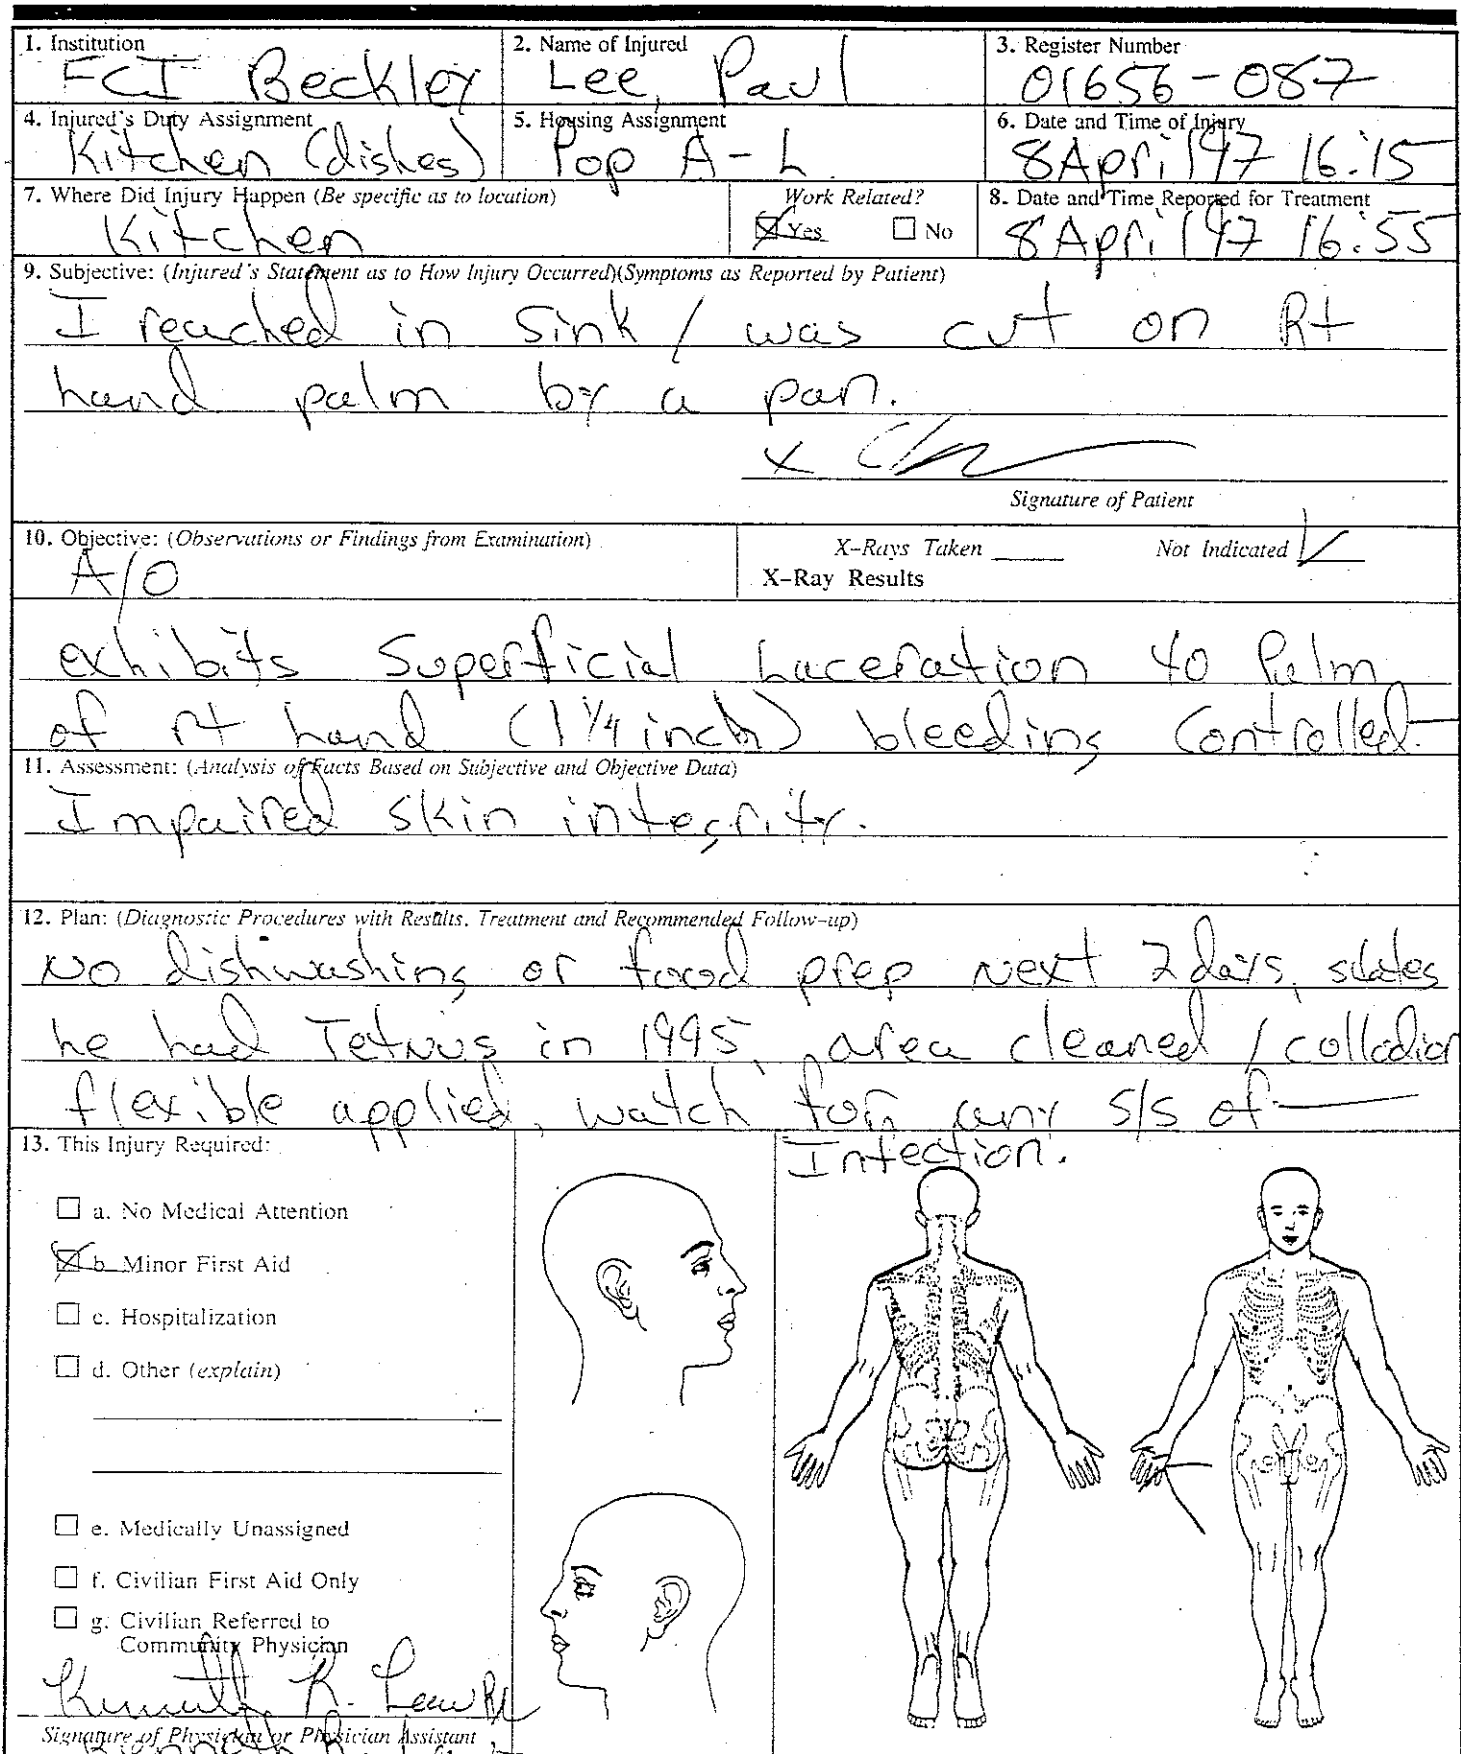 1. Institution
FCI Beckley
2. Name of Injured
Lee, Paul
3. Register Number
01656-087
4. Injured's Duty Assignment
Kitchen (dishes)
5. Housing Assignment
Pop A-L
6. Date and Time of Injury
8 April 97 16:15
7. Where Did Injury Happen (Be specific as to location)
Kitchen
Work Related?
Yes No
8. Date and Time Reported for Treatment
8 April 97 16:55
9. Subjective: (Injured's Statement as to How Injury Occurred)(Symptoms as Reported by Patient)
I reached in Sink / was cut on Rt
hand palm by a pan.
X
Signature of Patient
10. Objective: (Observations or Findings from Examination)
A/O
X-Rays Taken Not Indicated
X-Ray Results
exhibits Superficial Laceration to Palm
of rt hand (1 1/4 inch) bleeding Controlled.
11. Assessment: (Analysis of Facts Based on Subjective and Objective Data)
Impaired skin integrity.
12. Plan: (Diagnostic Procedures with Results, Treatment and Recommended Follow-up)
No dishwashing or food prep Next 2 days, states
he had Tetnus in 1995, area cleaned / collodion
flexible applied, watch for any s/s of
Infection.
13. This Injury Required:
a. No Medical Attention
b. Minor First Aid
c. Hospitalization
d. Other (explain)
e. Medically Unassigned
f. Civilian First Aid Only
g. Civilian Referred to
Community Physician
Kenneth R.
Signature of Physician or Physician Assistant
Kenneth R.